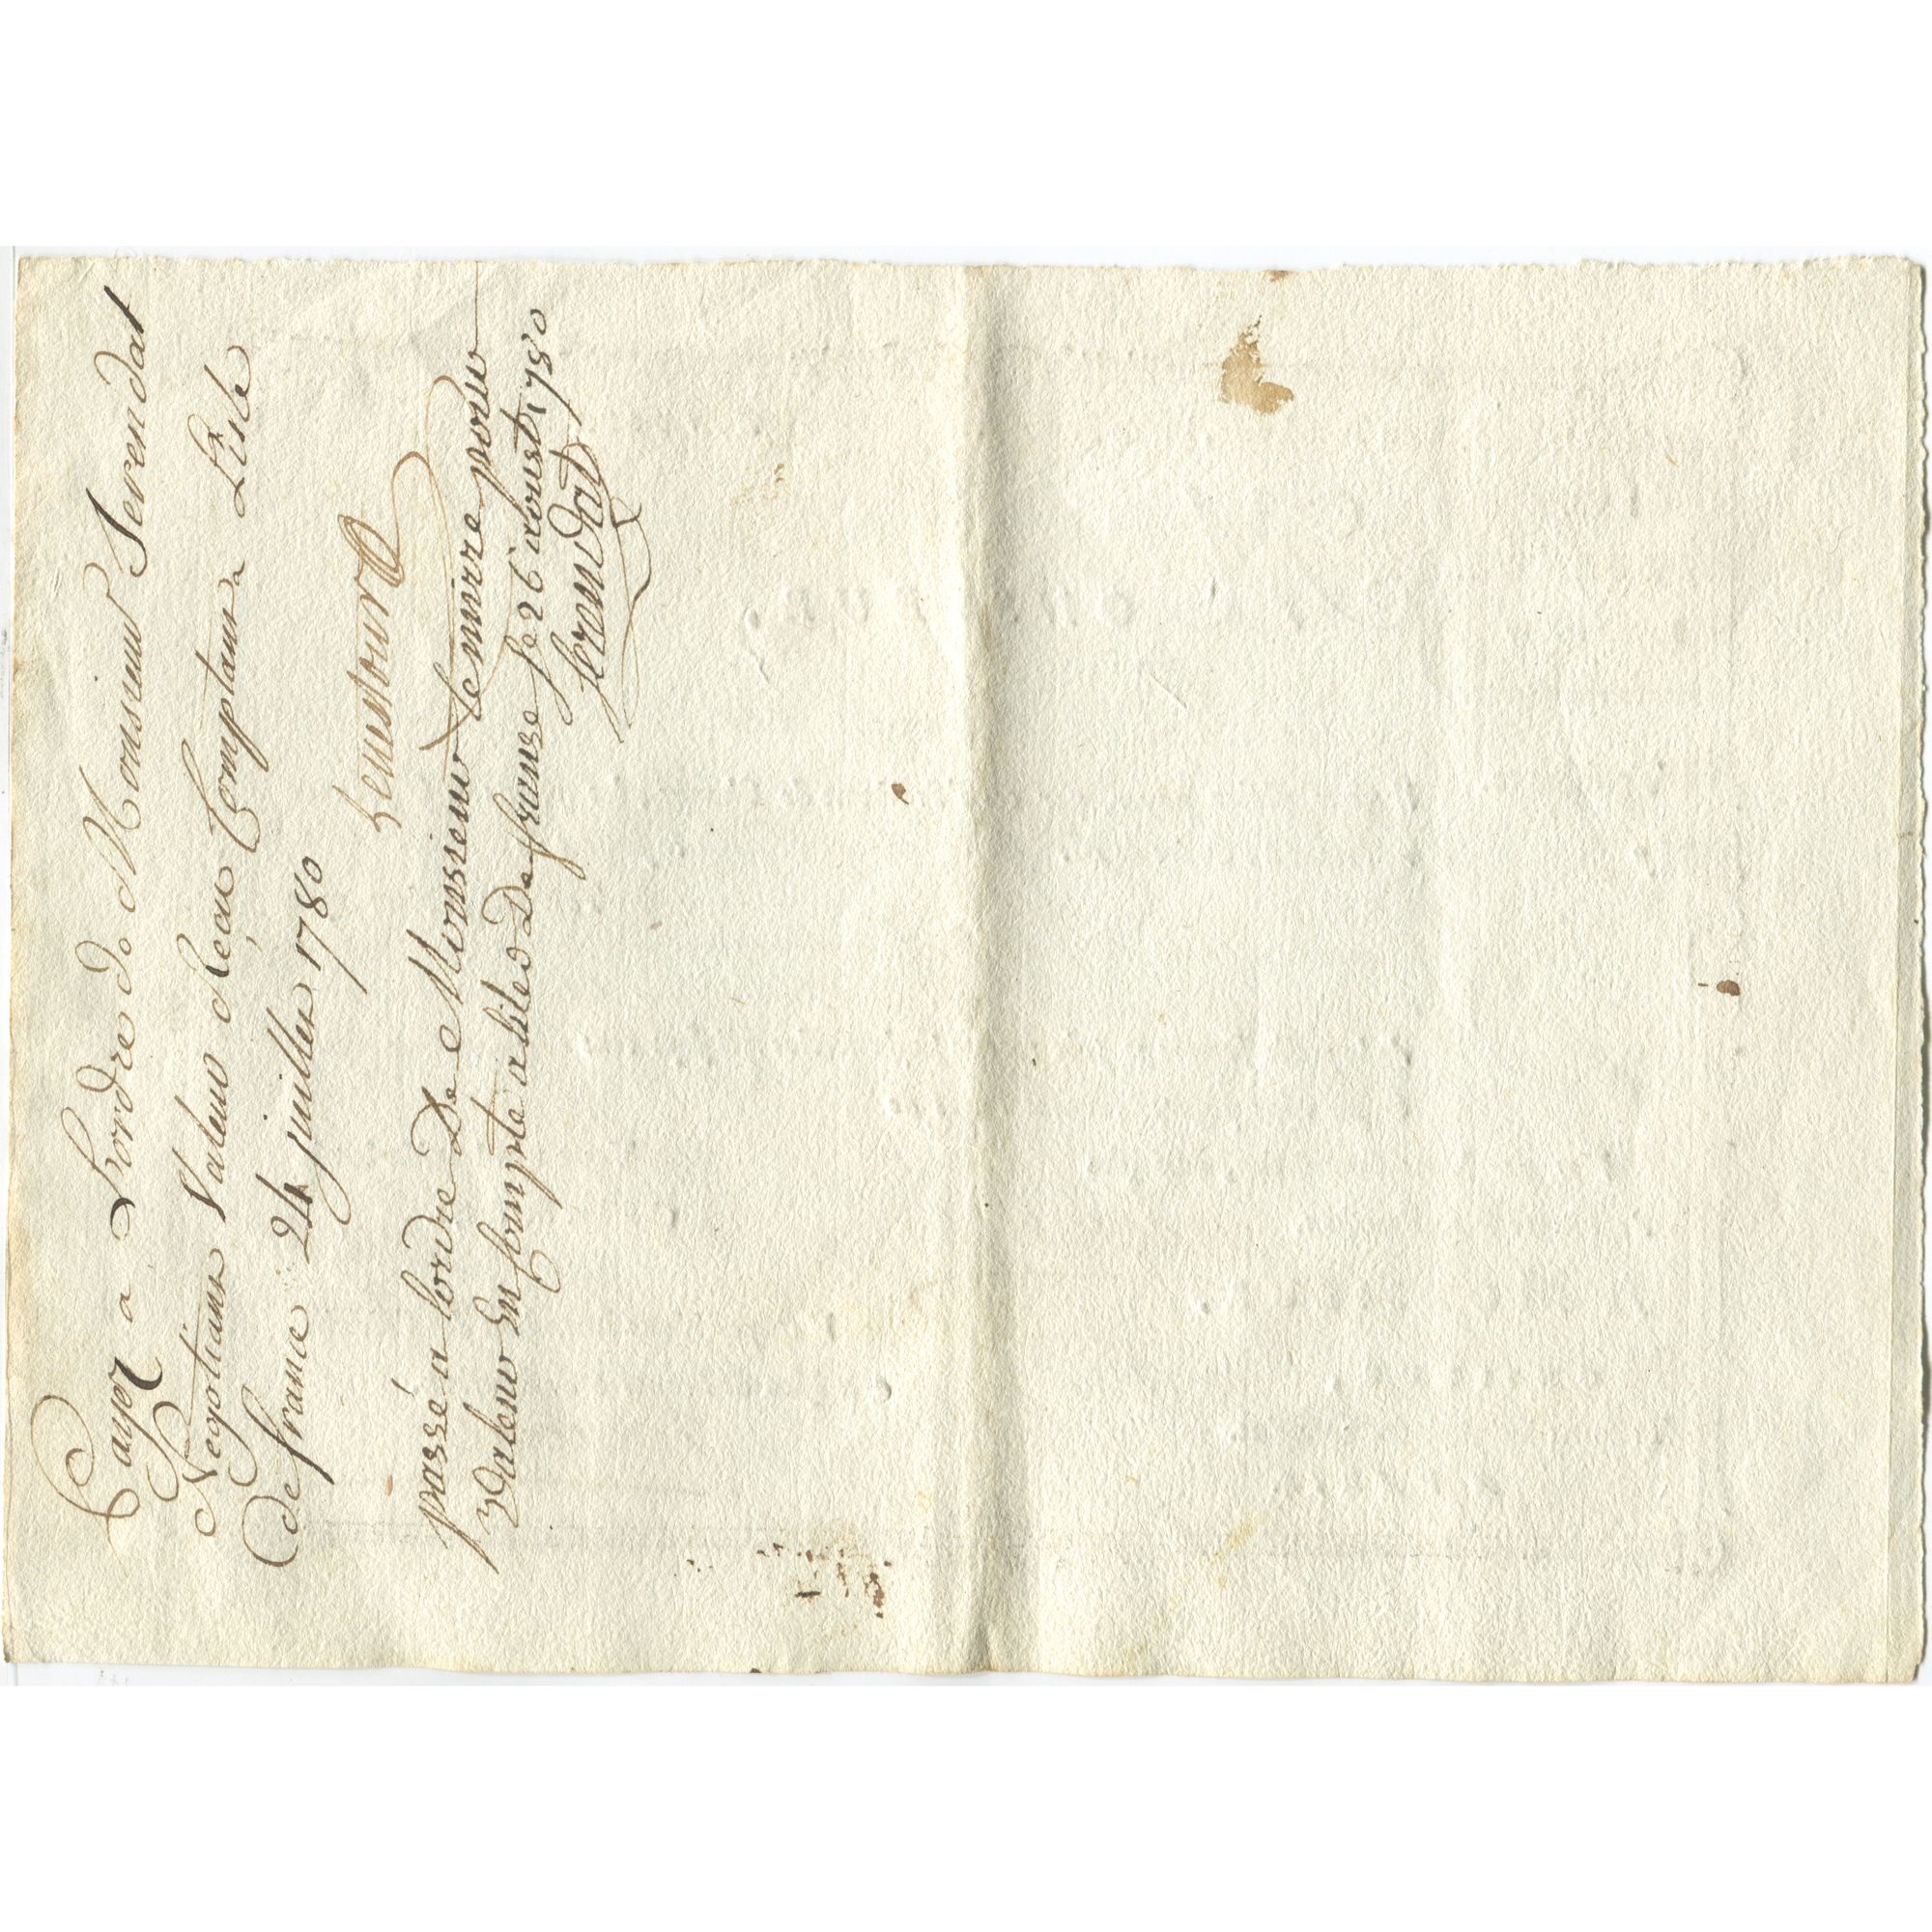 Payez a Lordre de Monsieur Serendat
Negotiant Valeur Reçeu Comptant a Lisle
de france 24 juillet 1780
passé a lordre De Monssieur Lemirre pour
Valeur En Compte a lile De franse le 26 aoust 1780
serendat